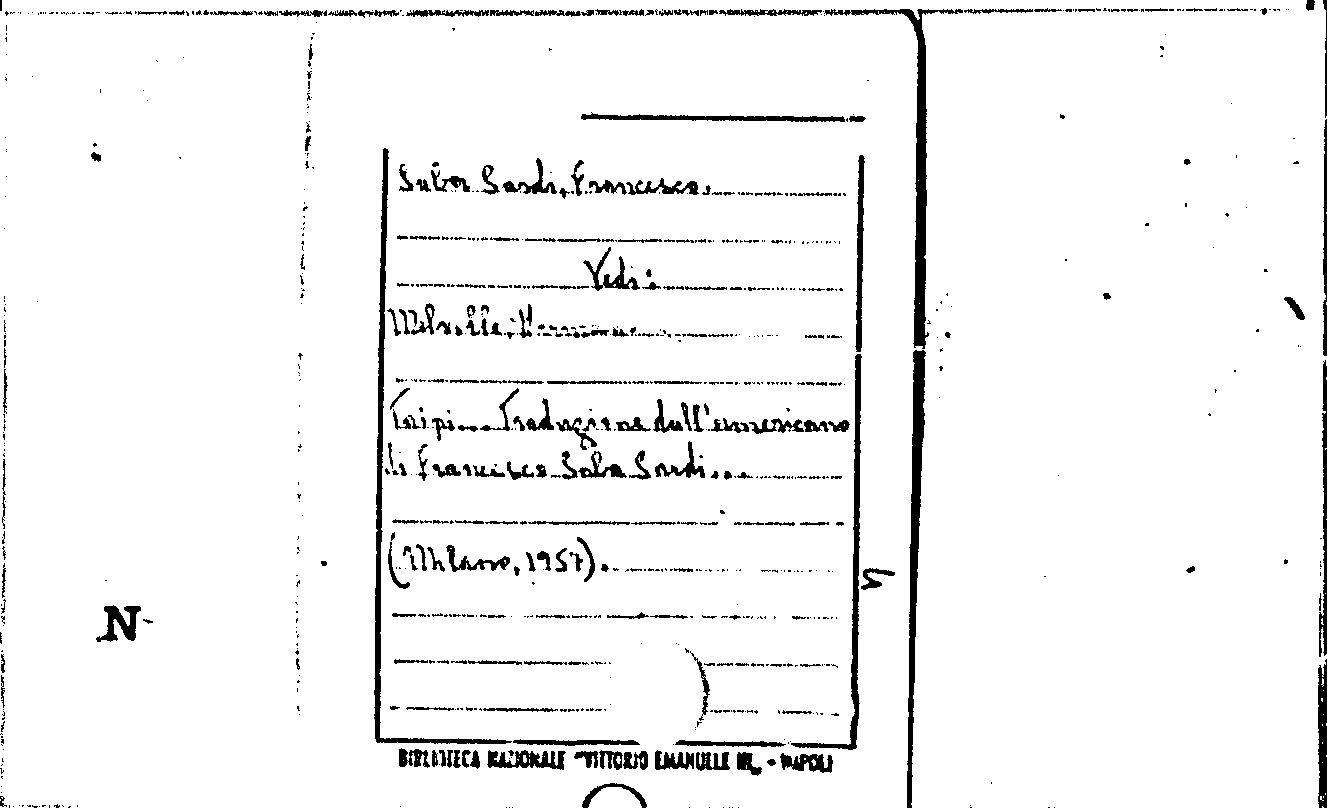 Saba Sardi, Francesco.
Vedi:
Melville, Herman.
Taipi... Traduzione dall'americano
di Francesco Saba Sardi...
(Milano, 1957).
N
BIBLIOTECA NAZIONALE "VITTORIO EMANUELE III" - NAPOLI